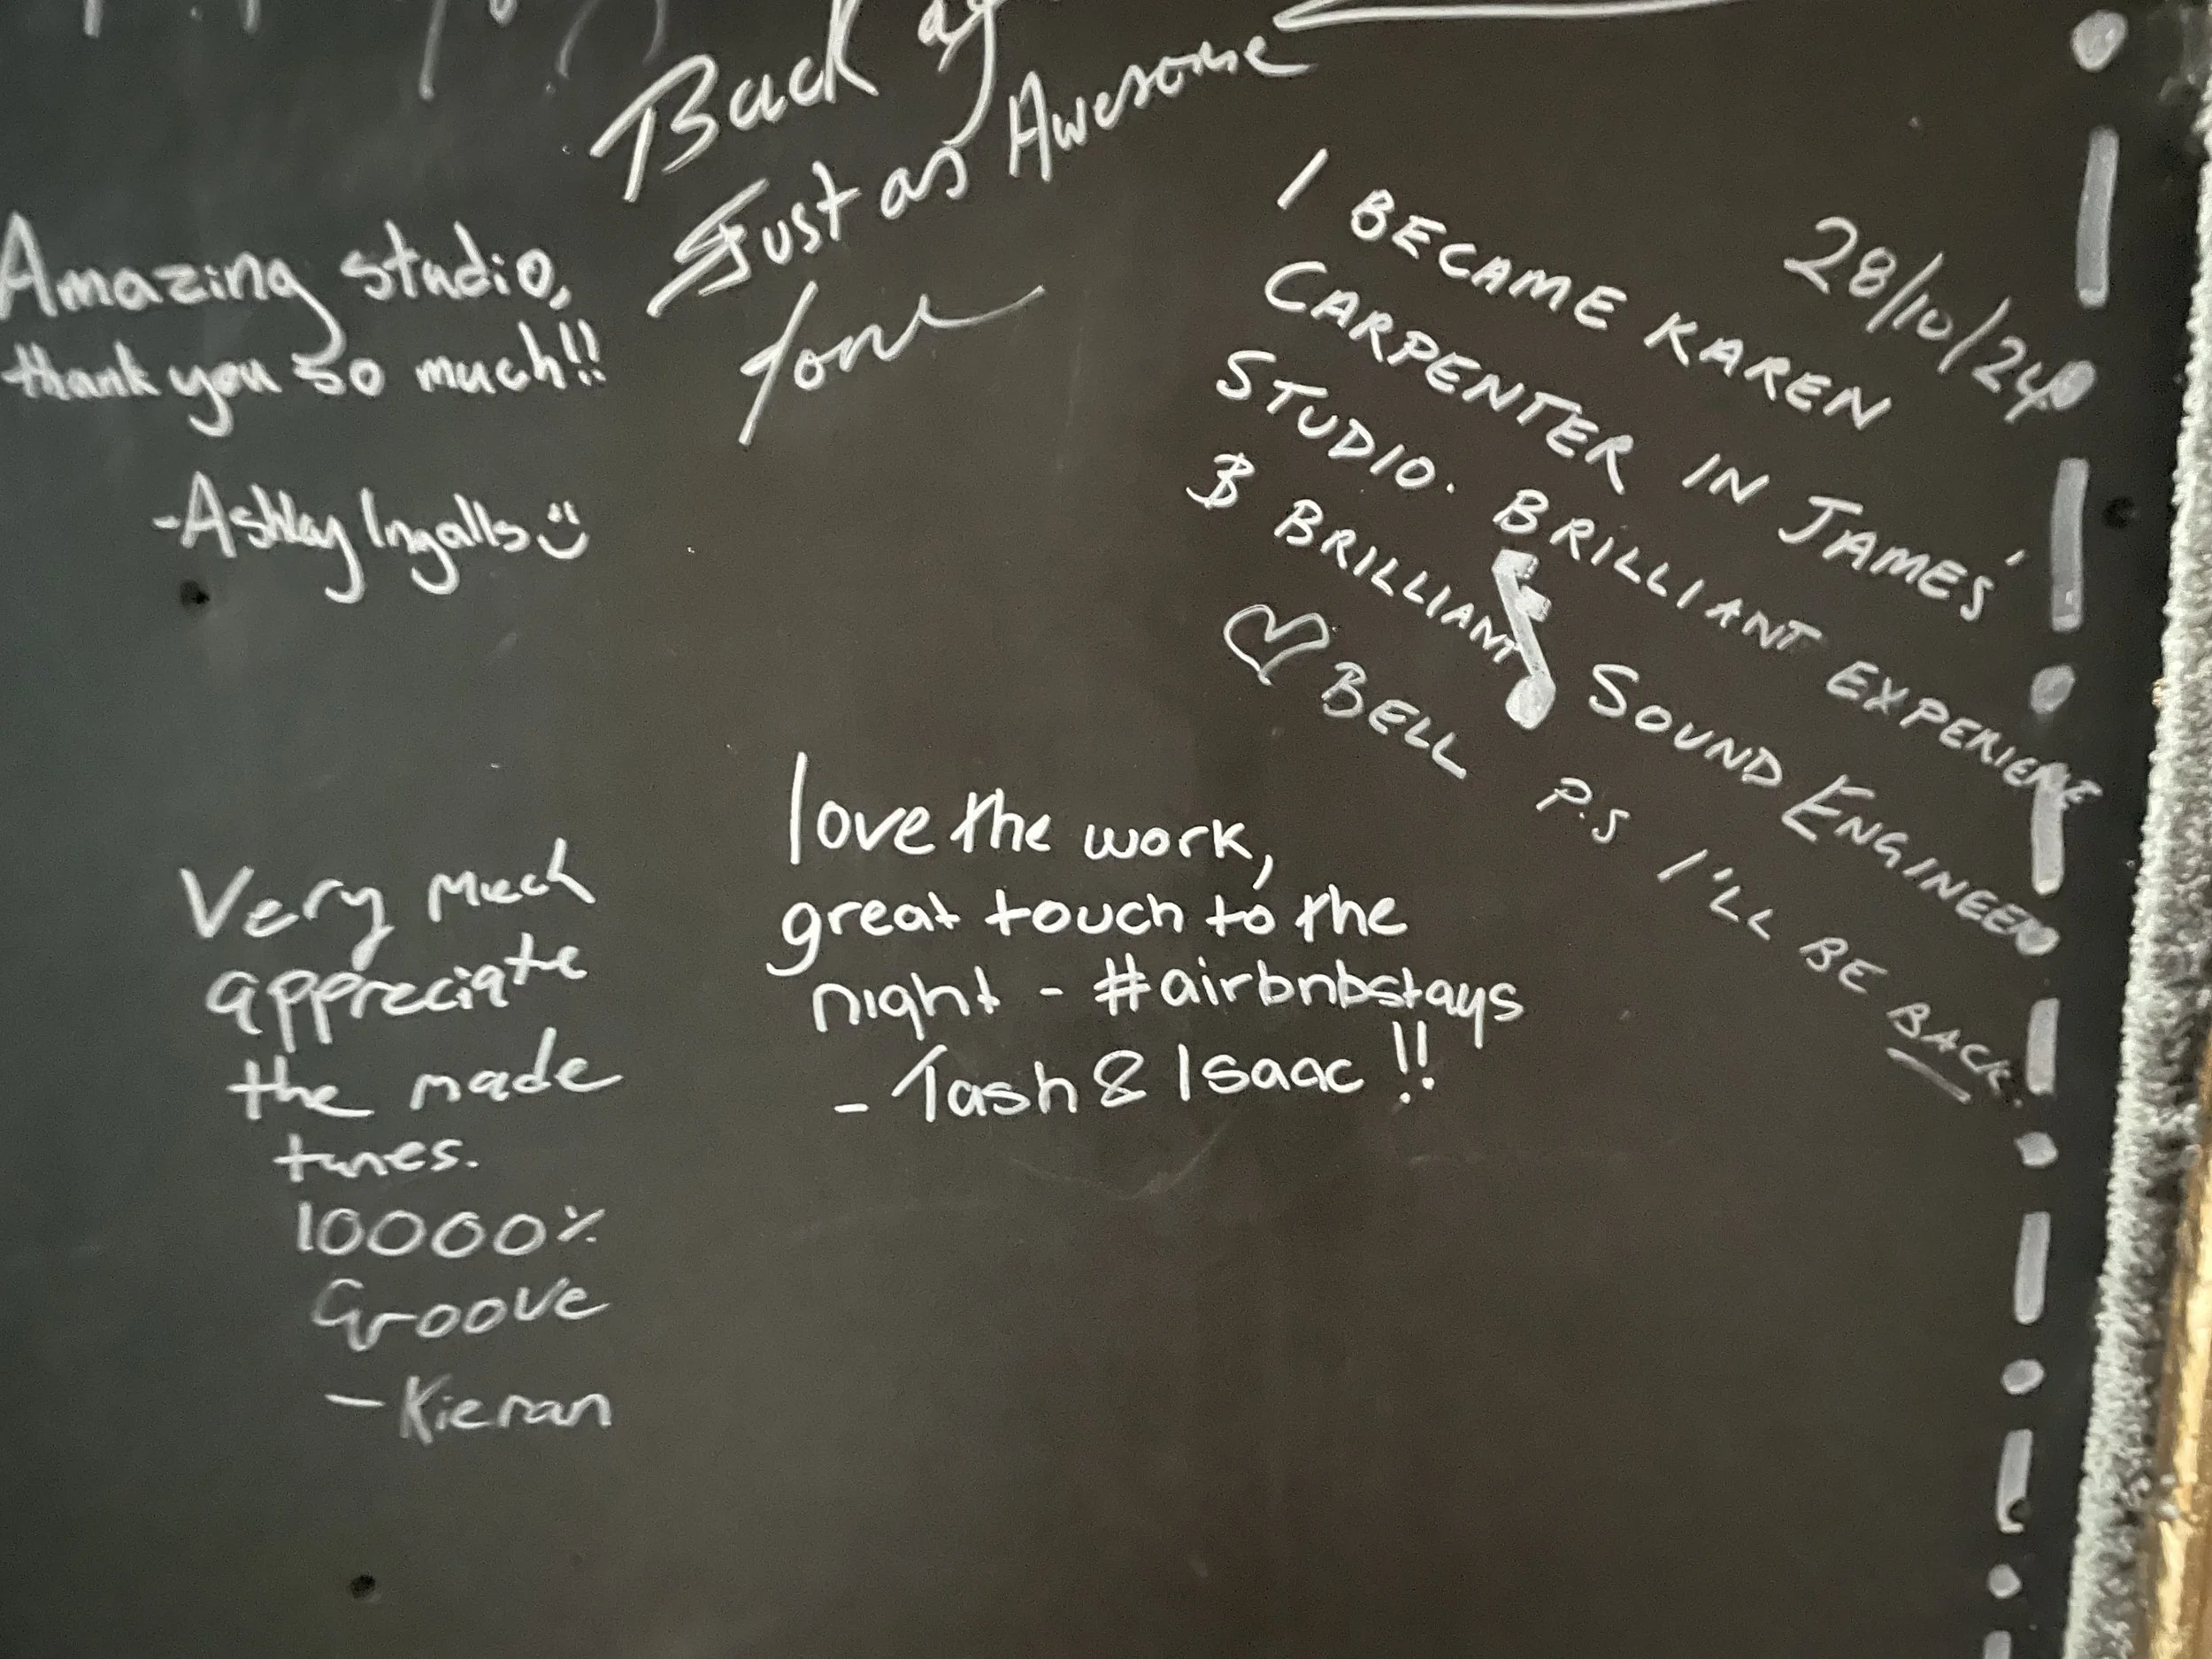 Back
Just as Awesome
Amazing studio,
thank you so much!!
-Ashley Ingalls
28/10/24
I BECAME KAREN
CARPENTER IN JAMES'
STUDIO. BRILLIANT EXPERIENCE
& BRILLIANT SOUND ENGINEER
BELL P.S I'LL BE BACK.
love the work,
great touch to the
night - #airbnbstays
- Tash & Isaac !!
Very much
appreciate
the made
tunes.
10000%
Groove
- Kieran